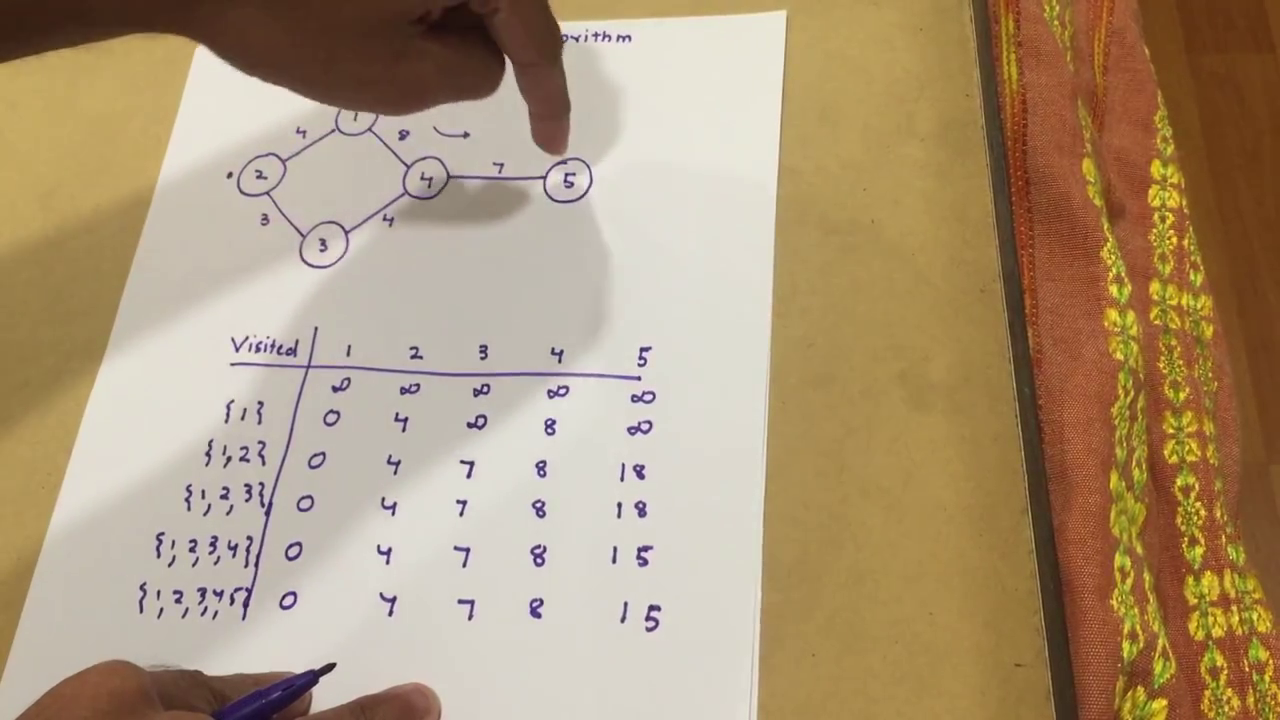 orithm
1
4 8
2 4 7 5
3 4
3
Visited 1 2 3 4 5
∞ ∞ ∞ ∞ ∞
{1} 0 4 ∞ 8 ∞
{1,2} 0 4 7 8 18
{1,2,3} 0 4 7 8 18
{1,2,3,4} 0 4 7 8 15
{1,2,3,4,5} 0 4 7 8 15